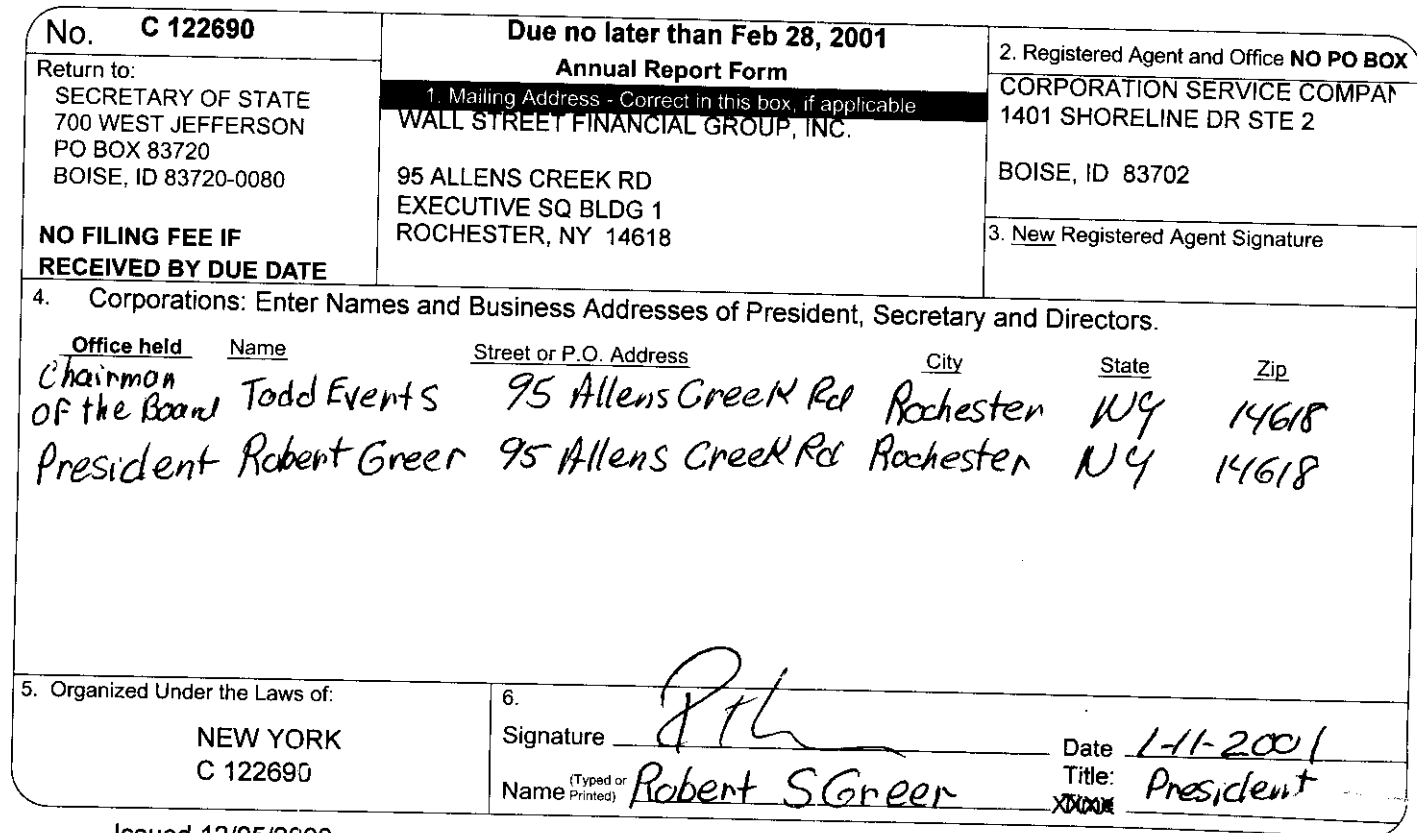 No. C 122690
Return to:
SECRETARY OF STATE
700 WEST JEFFERSON
PO BOX 83720
BOISE, ID 83720-0080
NO FILING FEE IF
RECEIVED BY DUE DATE
Due no later than Feb 28, 2001
Annual Report Form
1. Mailing Address - Correct in this box, if applicable
WALL STREET FINANCIAL GROUP, INC.
95 ALLENS CREEK RD
EXECUTIVE SQ BLDG 1
ROCHESTER, NY 14618
2. Registered Agent and Office NO PO BOX
CORPORATION SERVICE COMPAN
1401 SHORELINE DR STE 2
BOISE, ID 83702
3. New Registered Agent Signature
4. Corporations: Enter Names and Business Addresses of President, Secretary and Directors.
Office held Name Street or P.O. Address City State Zip
Chairman
of the Board Todd Everts 95 Allens Creek Rd Rochester NY 14618
President Robert Greer 95 Allens Creek Rd Rochester NY 14618
5. Organized Under the Laws of:
NEW YORK
C 122690
6.
Signature Date 1-11-2001
Name (Typed or Printed) Robert S Greer Title: President